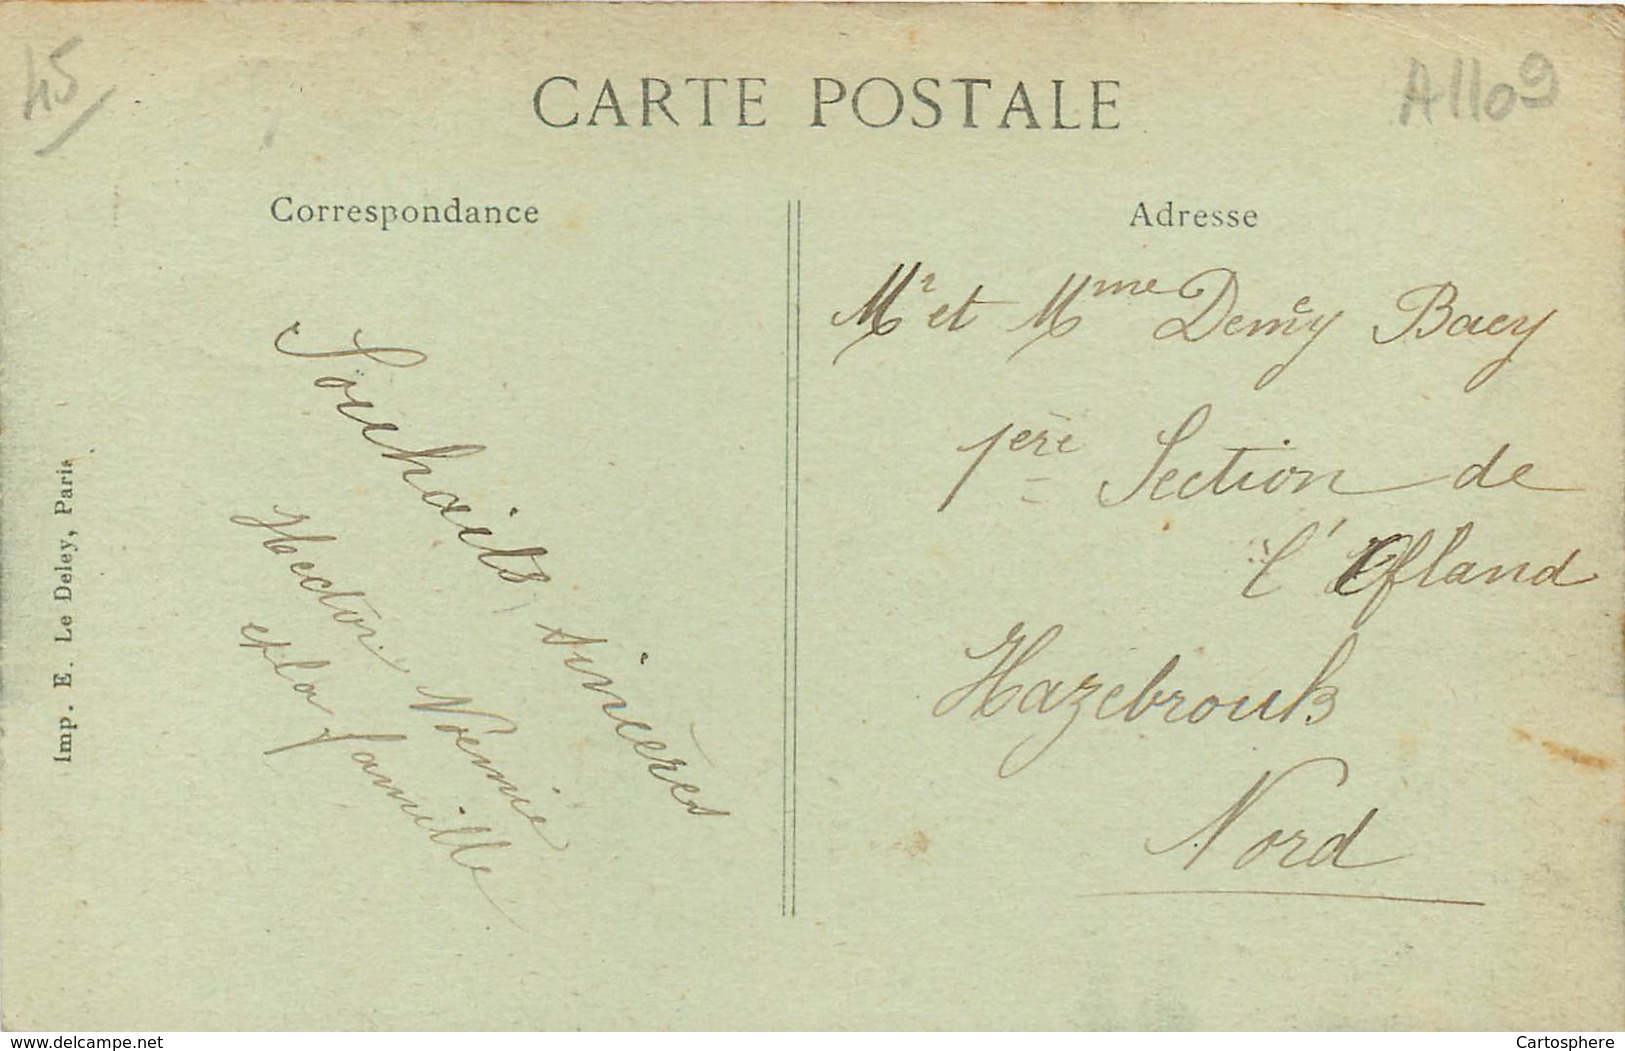 45
A1109
CARTE POSTALE
Correspondance
Souhaits sincères
Hector Noémie
et la famille
Imp. E. Le Deley, Paris
Adresse
Mr et Mme Demey Baey
1ère Section de
l'Hofland
Hazebrouk
Nord
www.delcampe.net
Cartosphere